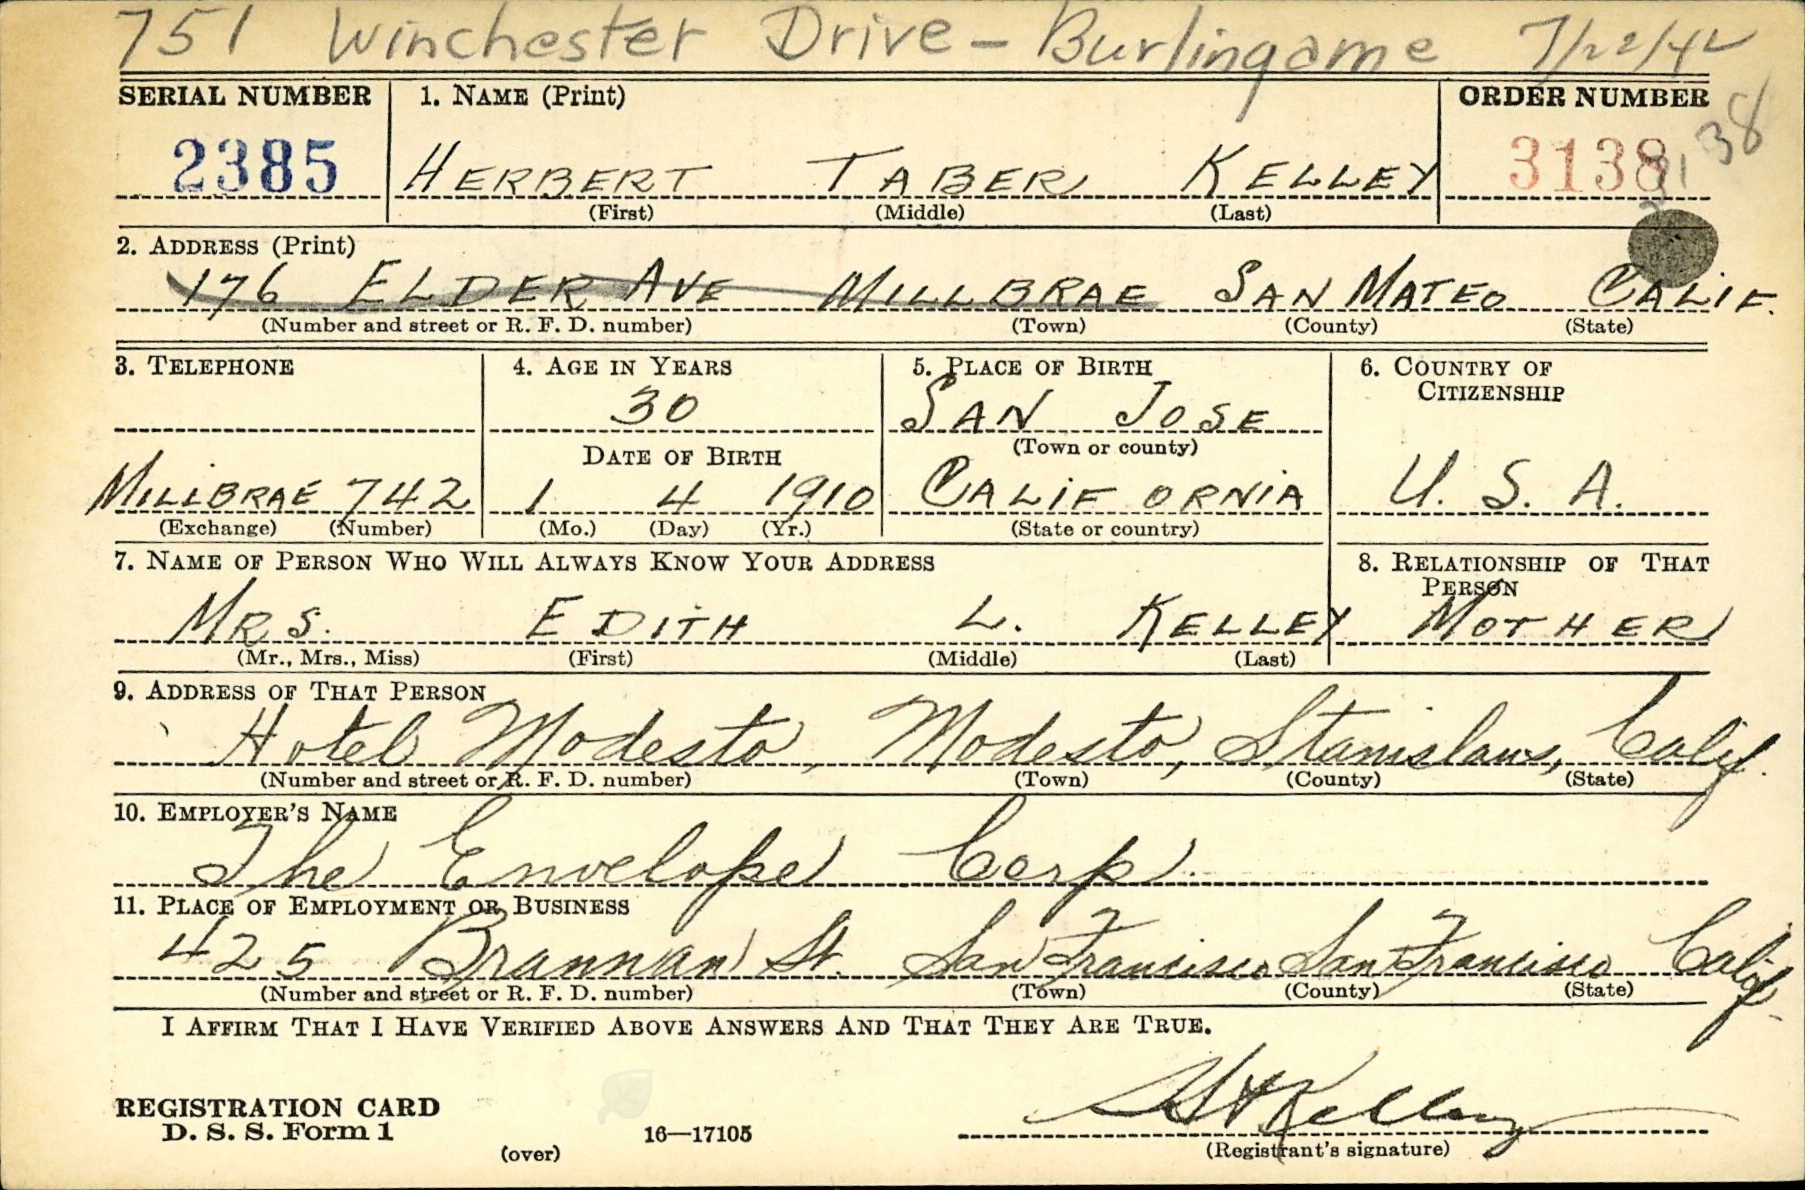 751 Winchester Drive - Burlingame 7/22/42
SERIAL NUMBER 1. NAME (Print) ORDER NUMBER
2385 HERBERT TABER KELLEY 3138 3138
(First) (Middle) (Last)
2. ADDRESS (Print)
176 ELDER AVE MILLBRAE SAN MATEO CALIF.
(Number and street or R. F. D. number) (Town) (County) (State)
3. TELEPHONE 4. AGE IN YEARS 5. PLACE OF BIRTH 6. COUNTRY OF
CITIZENSHIP
30 SAN JOSE
DATE OF BIRTH (Town or county)
MILLBRAE 742 1 4 1910 CALIFORNIA U. S. A.
(Exchange) (Number) (Mo.) (Day) (Yr.) (State or country)
7. NAME OF PERSON WHO WILL ALWAYS KNOW YOUR ADDRESS 8. RELATIONSHIP OF THAT
PERSON
MRS. EDITH L. KELLEY MOTHER
(Mr., Mrs., Miss) (First) (Middle) (Last)
9. ADDRESS OF THAT PERSON
Hotel Modesto, Modesto, Stanislaus, Calif.
(Number and street or R. F. D. number) (Town) (County) (State)
10. EMPLOYER'S NAME
The Envelope Corp.
11. PLACE OF EMPLOYMENT OR BUSINESS
425 Brannan St. San Francisco San Francisco Calif.
(Number and street or R. F. D. number) (Town) (County) (State)
I AFFIRM THAT I HAVE VERIFIED ABOVE ANSWERS AND THAT THEY ARE TRUE.
H T Kelley
REGISTRATION CARD
D. S. S. Form 1 16—17105
(over) (Registrant's signature)